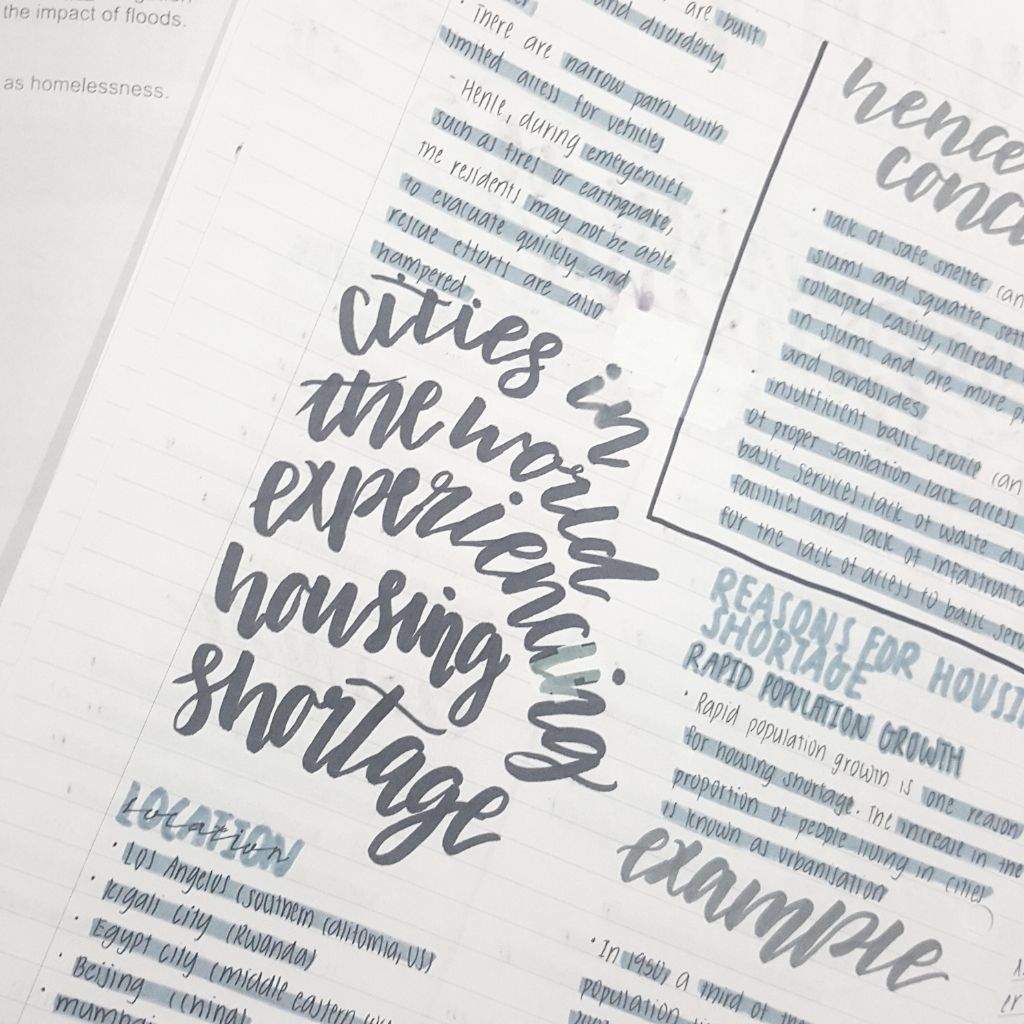 the impact of floods.
as homelessness.
are built
and disorderly
· There are narrow paths with
limited access for vehicles
- Hence, during emergencies
such as fires or earthquake,
the residents may not be able
to evacuate quickly and
rescue efforts are also
hampered.
cities in
the world
experiencing
housing
shortage
LOCATION
Location
· Los Angelus (southern California, US)
· Kigali city (Rwanda)
· Egypt city (middle eastern
· Beijing (China)
· mumbai
hence
· lack of safe shelter can
slums and squatter
collasped easily, increase
in slums and are more
and landslides
· insufficient basic service can
of proper sanitation, lack access
basic services, lack of waste
facilities and lack of
for the lack of access to basic
REASONS FOR
SHORTAGE
RAPID POPULATION GROWTH
· Rapid population growth is one reason
for housing shortage. The increase in the
proportion of people living in cities
is known as urbanisation
example
· In 1950, a third of the
population